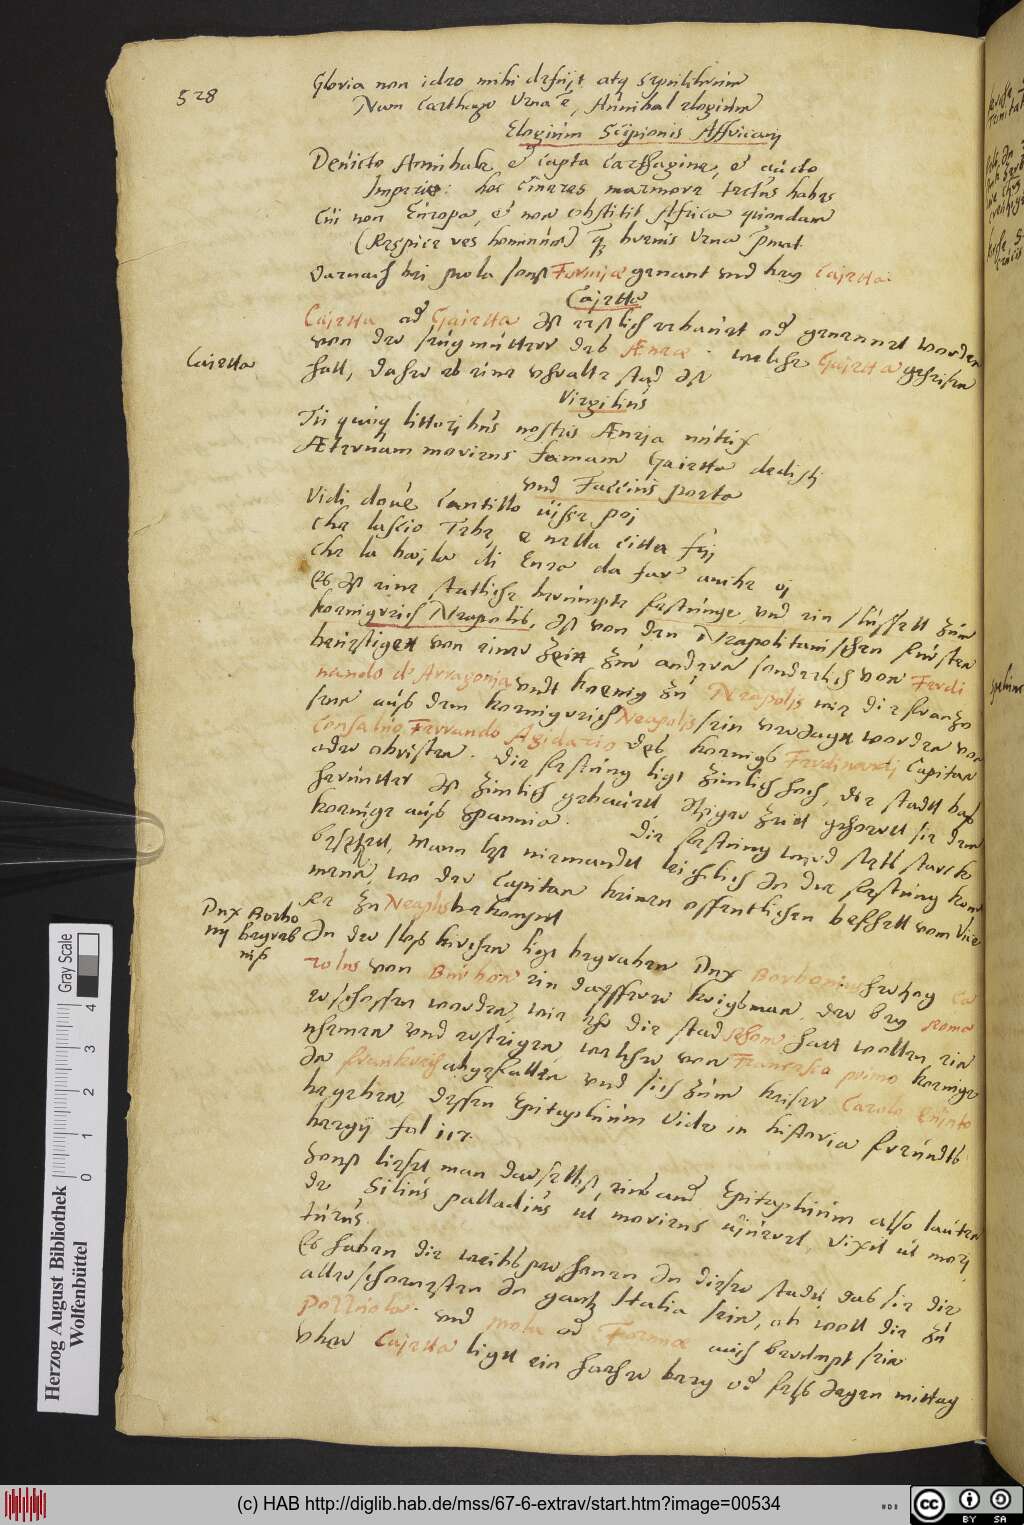 528
Gloria non ideo mihi defuijt atq sepulchrum
Num Carthago Urna ē, Annibal elogium
Elogium Scipionis Affricanj
Devicto Annibale, et capta Carthagine, et aucto
Imperio: hoc cineres marmore tectus habes
Cui non Europa, et non obstitit Africa quondam
(Respice res hominum) q̄ brevis Urna p̄mat.
Darnach bei mola sonst Formiæ genant und berg Cajetta.
Cajetta
Cajetta od Gaietta Ist erstlich erbauet od genennet worden
Caietta
von der seugmuttere deß Æneæ. welche Gaietta geheisen
hatt, daher eß eine uhralte stad ist
Virgilius
Tu quoq littoribus nostris Æneja nutrix
Æternam moriens famam Gaietta dedisti
und Faccius poeta
Vidi dove Cantillo uisse poj
che lascio Tebe, e nella citta fuj
che la bajla di Enea da fare anche oj
Es ist eine statliche berumpte festunge, und ein slussell zum
koenigreich Neapolis, Ist von den Neapolitanischen fursten
beuestiget von einer zeitt zu andern sonderlich von Ferdi
nando de Arragonia undt koenig zu Neapolis wie die franzo
sen auß dem koenigreich Neapolis sein veriaget worden von
Consalvo Ferrando Agidario deß koenigs Ferdinandj Capitan
oder obristen. Die festung ligt zimlich hoch, die stadt baß
herunter ist zimlich gebauett, itziger zeit gehorett sie dem
koenige auß Spannia. Die festung wird stets starck
besetzet, Mann lest niemandt leichtlich in die festung kom
menn, wo der Capitan keinen offentlichen befhell vom Vice
Re zu Neaplis bekompt
Dux Borbo
nij begreb
niß
In der sloß kirchen ligt begraben Dux Borbonius herzog Ca
rolus von Burbon ein dapfferer kriegßman, der bey
erschossen worden, wie ehr die stad Rhom hatt wollen ein
nhemen und ersteigen, welcher von Francesco primo koenige
in frankreich abgefallen und sich zum keiser Carolo Quinto
begeben, dessen Epitaphium vide in historia freundts
bergij fol 117.
Sonst lieset man daselbst, eins and Epitaphium also lauten
de Silius palladius ut moriens uiueret, vixit ut mori
turus.
Es haben die weibßpersonen in dieser stadt daß sie die
allerschoenesten in gantz Italia sein, ob woll die zu
Pozzuolo. und mola od Formiæ auch berumpt sein
Uber Cajetta ligtt ein hoher berg od felß iegen mittag
Herzog August Bibliothek
Wolfenbüttel
Gray Scale
0 1 2 3 4
(c) HAB http://diglib.hab.de/mss/67-6-extrav/start.htm?image=00534
cc BY SA